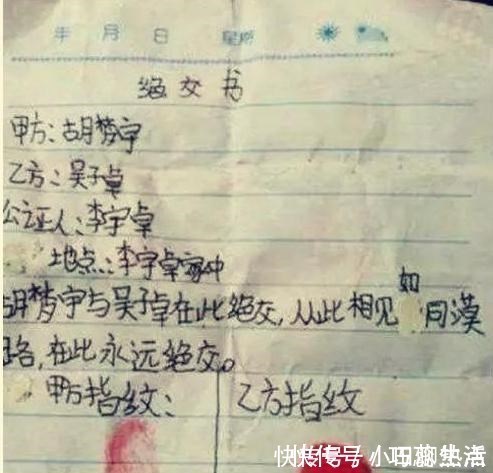 年 月 日 星期
绝交书
甲方:胡梦宇
乙方:吴子卓
公证人:李宇卓
地点:李宇卓家中
胡梦宇与吴子卓在此绝交,从此相见如同漠
路,在此永远绝交。
甲方指纹: 乙方指纹
快传号/小巧聊生活